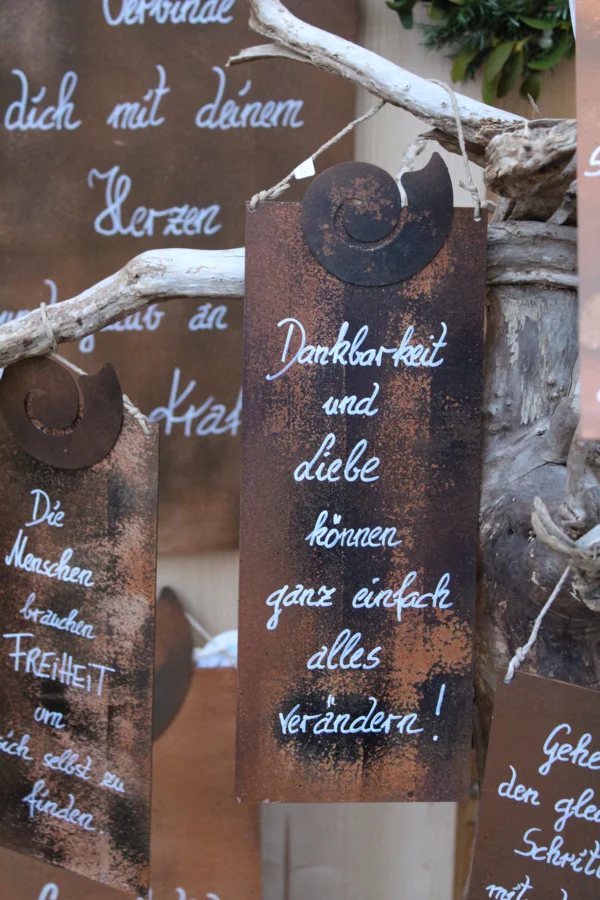 Verbinde
dich mit deinem
Herzen
an
Dankbarkeit
und
Liebe
können
ganz einfach
alles
verändern!
Die
Menschen
brauchen
FREiHEiT
um
sich selbst zu
finden.
Gehe
den
Schritt
mit